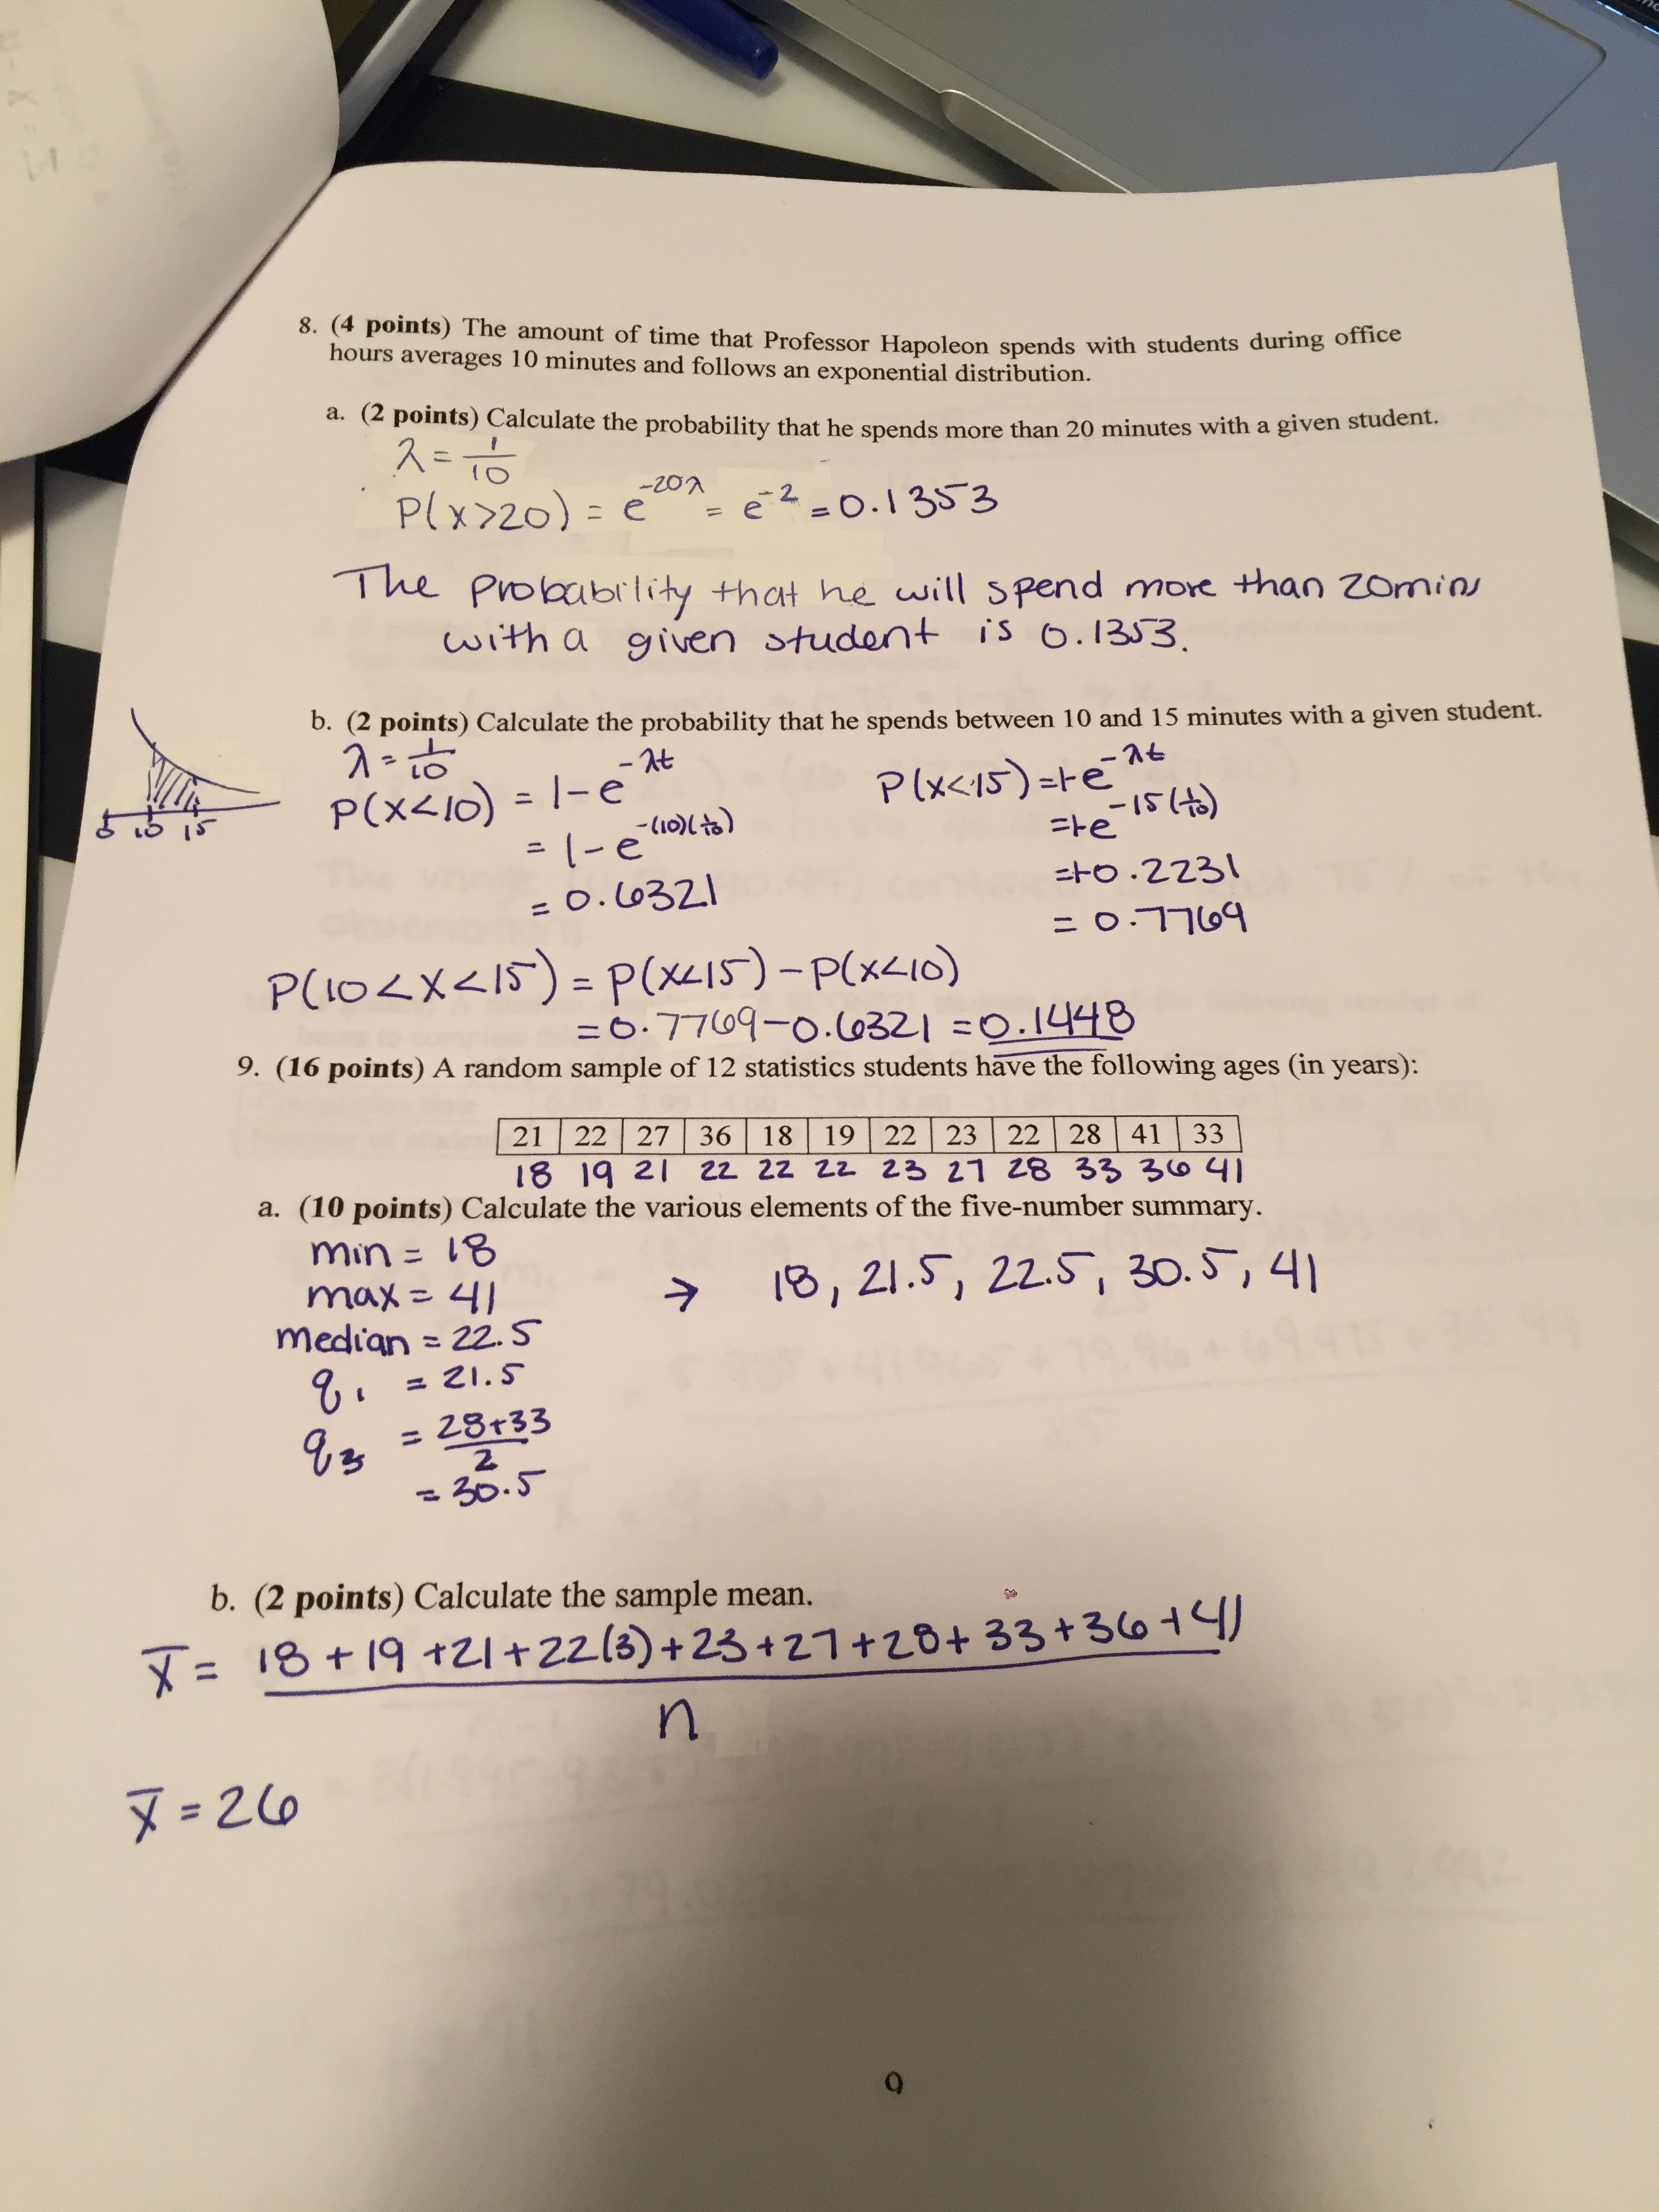 8. (4 points) The amount of time that Professor Hapoleon spends with students during office
hours averages 10 minutes and follows an exponential distribution.
a. (2 points) Calculate the probability that he spends more than 20 minutes with a given student.
λ = 1/10
P(X>20) = e^-20λ = e^-2 = 0.1353
The probability that he will spend more than 20mins
with a given student is 0.1353.
b. (2 points) Calculate the probability that he spends between 10 and 15 minutes with a given student.
0 10 15
λ = 1/10
P(X<10) = 1-e^-λt
= 1-e^-(10)(1/10)
= 0.6321
P(X<15) = 1-e^-λt
= 1-e^-15(1/10)
= 1-0.2231
= 0.7769
P(10<X<15) = P(X<15) - P(X<10)
= 0.7769-0.6321 = 0.1448
9. (16 points) A random sample of 12 statistics students have the following ages (in years):
21 22 27 36 18 19 22 23 22 28 41 33
18 19 21 22 22 22 23 27 28 33 36 41
a. (10 points) Calculate the various elements of the five-number summary.
min = 18
max = 41
→ 18, 21.5, 22.5, 30.5, 41
median = 22.5
q1 = 21.5
q3 = 28+33/2
= 30.5
b. (2 points) Calculate the sample mean.
x̄ = 18+19+21+22(3)+23+27+28+33+36+41
n
x̄ = 26